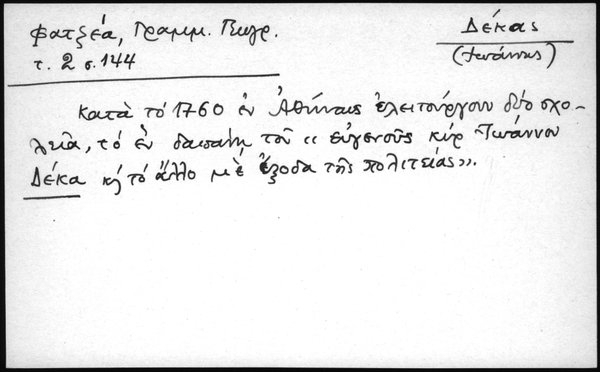 Φατζέα, Γραμμ. Γεωγρ.
τ. 2 σ. 144
Δέκας
(Ἰωάννης)
Κατὰ τὸ 1760 ἐν Ἀθήναις ἐλειτούργουν δύο σχο-
λεῖα, τὸ ἓν δαπάνῃ τοῦ « εὐγενοῦς κὺρ Ἰωάννου
Δέκα κ' τὸ ἄλλο μὲ ἔξοδα τῆς πολιτείας».